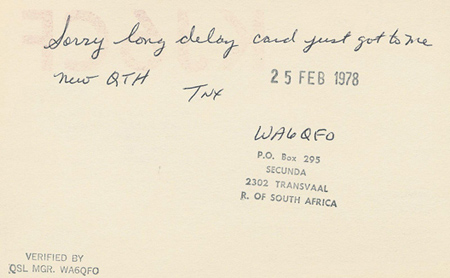 Sorry long delay card just got to me
new QTH
25 FEB 1978
Tnx
WA6QFO
P.O. Box 295
SECUNDA
2302 TRANSVAAL
R. OF SOUTH AFRICA
VERIFIED BY
QSL MGR. WA6QFO